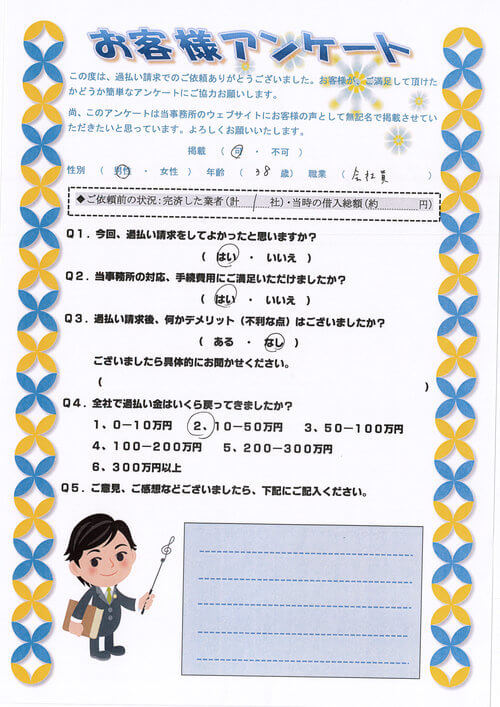 お客様アンケート
この度は、過払い請求でのご依頼ありがとうございました。お客様が、ご満足して頂けた
かどうか簡単なアンケートにご協力お願いします。
尚、このアンケートは当事務所のウェブサイトにお客様の声として無記名で掲載させてい
ただきたいと思っています。よろしくお願いいたします。
掲載 ( 可 ・ 不可 )
性別 ( 男性 ・ 女性 ) 年齢 ( 38 歳 ) 職業 ( 会社員 )
◆ご依頼前の状況:完済した業者(計 1 社)・当時の借入総額(約 円)
Q1.今回、過払い請求をしてよかったと思いますか?
( はい ・ いいえ )
Q2.当事務所の対応、手続費用にご満足いただけましたか?
( はい ・ いいえ )
Q3.過払い請求後、何かデメリット(不利な点)はございましたか?
( ある ・ なし )
ございましたら具体的にお聞かせください。
( )
Q4.全社で過払い金はいくら戻ってきましたか?
1、0-10万円 2、10-50万円 3、50-100万円
4、100-200万円 5、200-300万円
6、300万円以上
Q5.ご意見、ご感想などございましたら、下記にご記入ください。